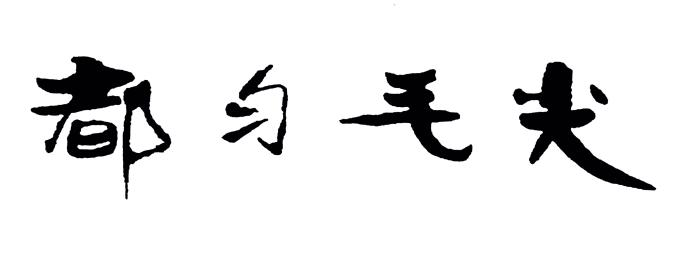 都匀毛尖